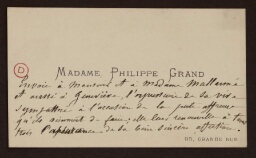 D
MADAME PHILIPPE GRAND
Envoie à monsieur et à madame Mallarmé
et aussi à Geneviève, l'expression de sa vive
sympathie à l'occasion de la perte affreuse
qu'ils viennent de faire; elle leur renouvelle à tous
trois l'assurance de sa bien sincère affection.
GRANDE RUE